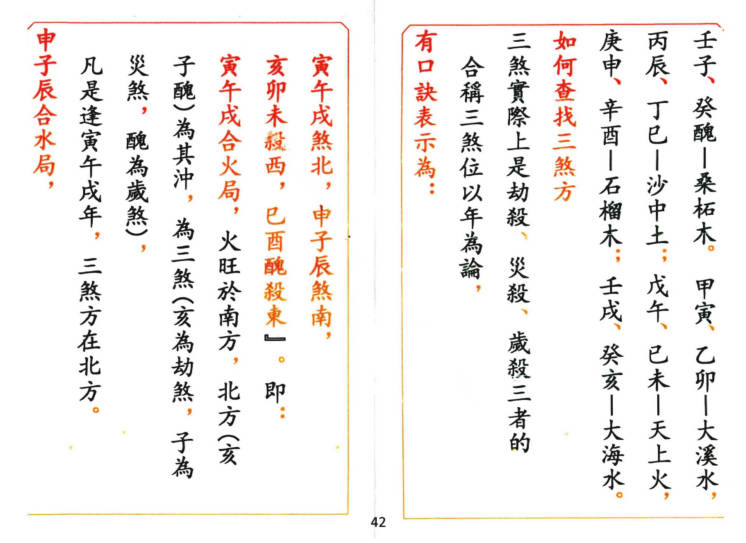 壬子、癸醜—桑柘木。 甲寅、乙卯—大溪水，
丙辰、丁巳—沙中土；戊午、已未—天上火，
庚申、辛酉—石榴木；壬戌、癸亥—大海水。
如何查找三煞方
三煞實際上是劫殺、災殺、歲殺三者的
合稱三煞位以年為論，
有口訣表示為：
寅午戌煞北，申子辰煞南，
亥卯未殺西，巳酉醜殺東』。即：
寅午戌合火局，火旺於南方，北方(亥
子醜)為其沖，為三煞(亥為劫煞，子為
災煞，醜為歲煞)，
凡是逢寅午戌年，三煞方在北方。
申子辰合水局，
42